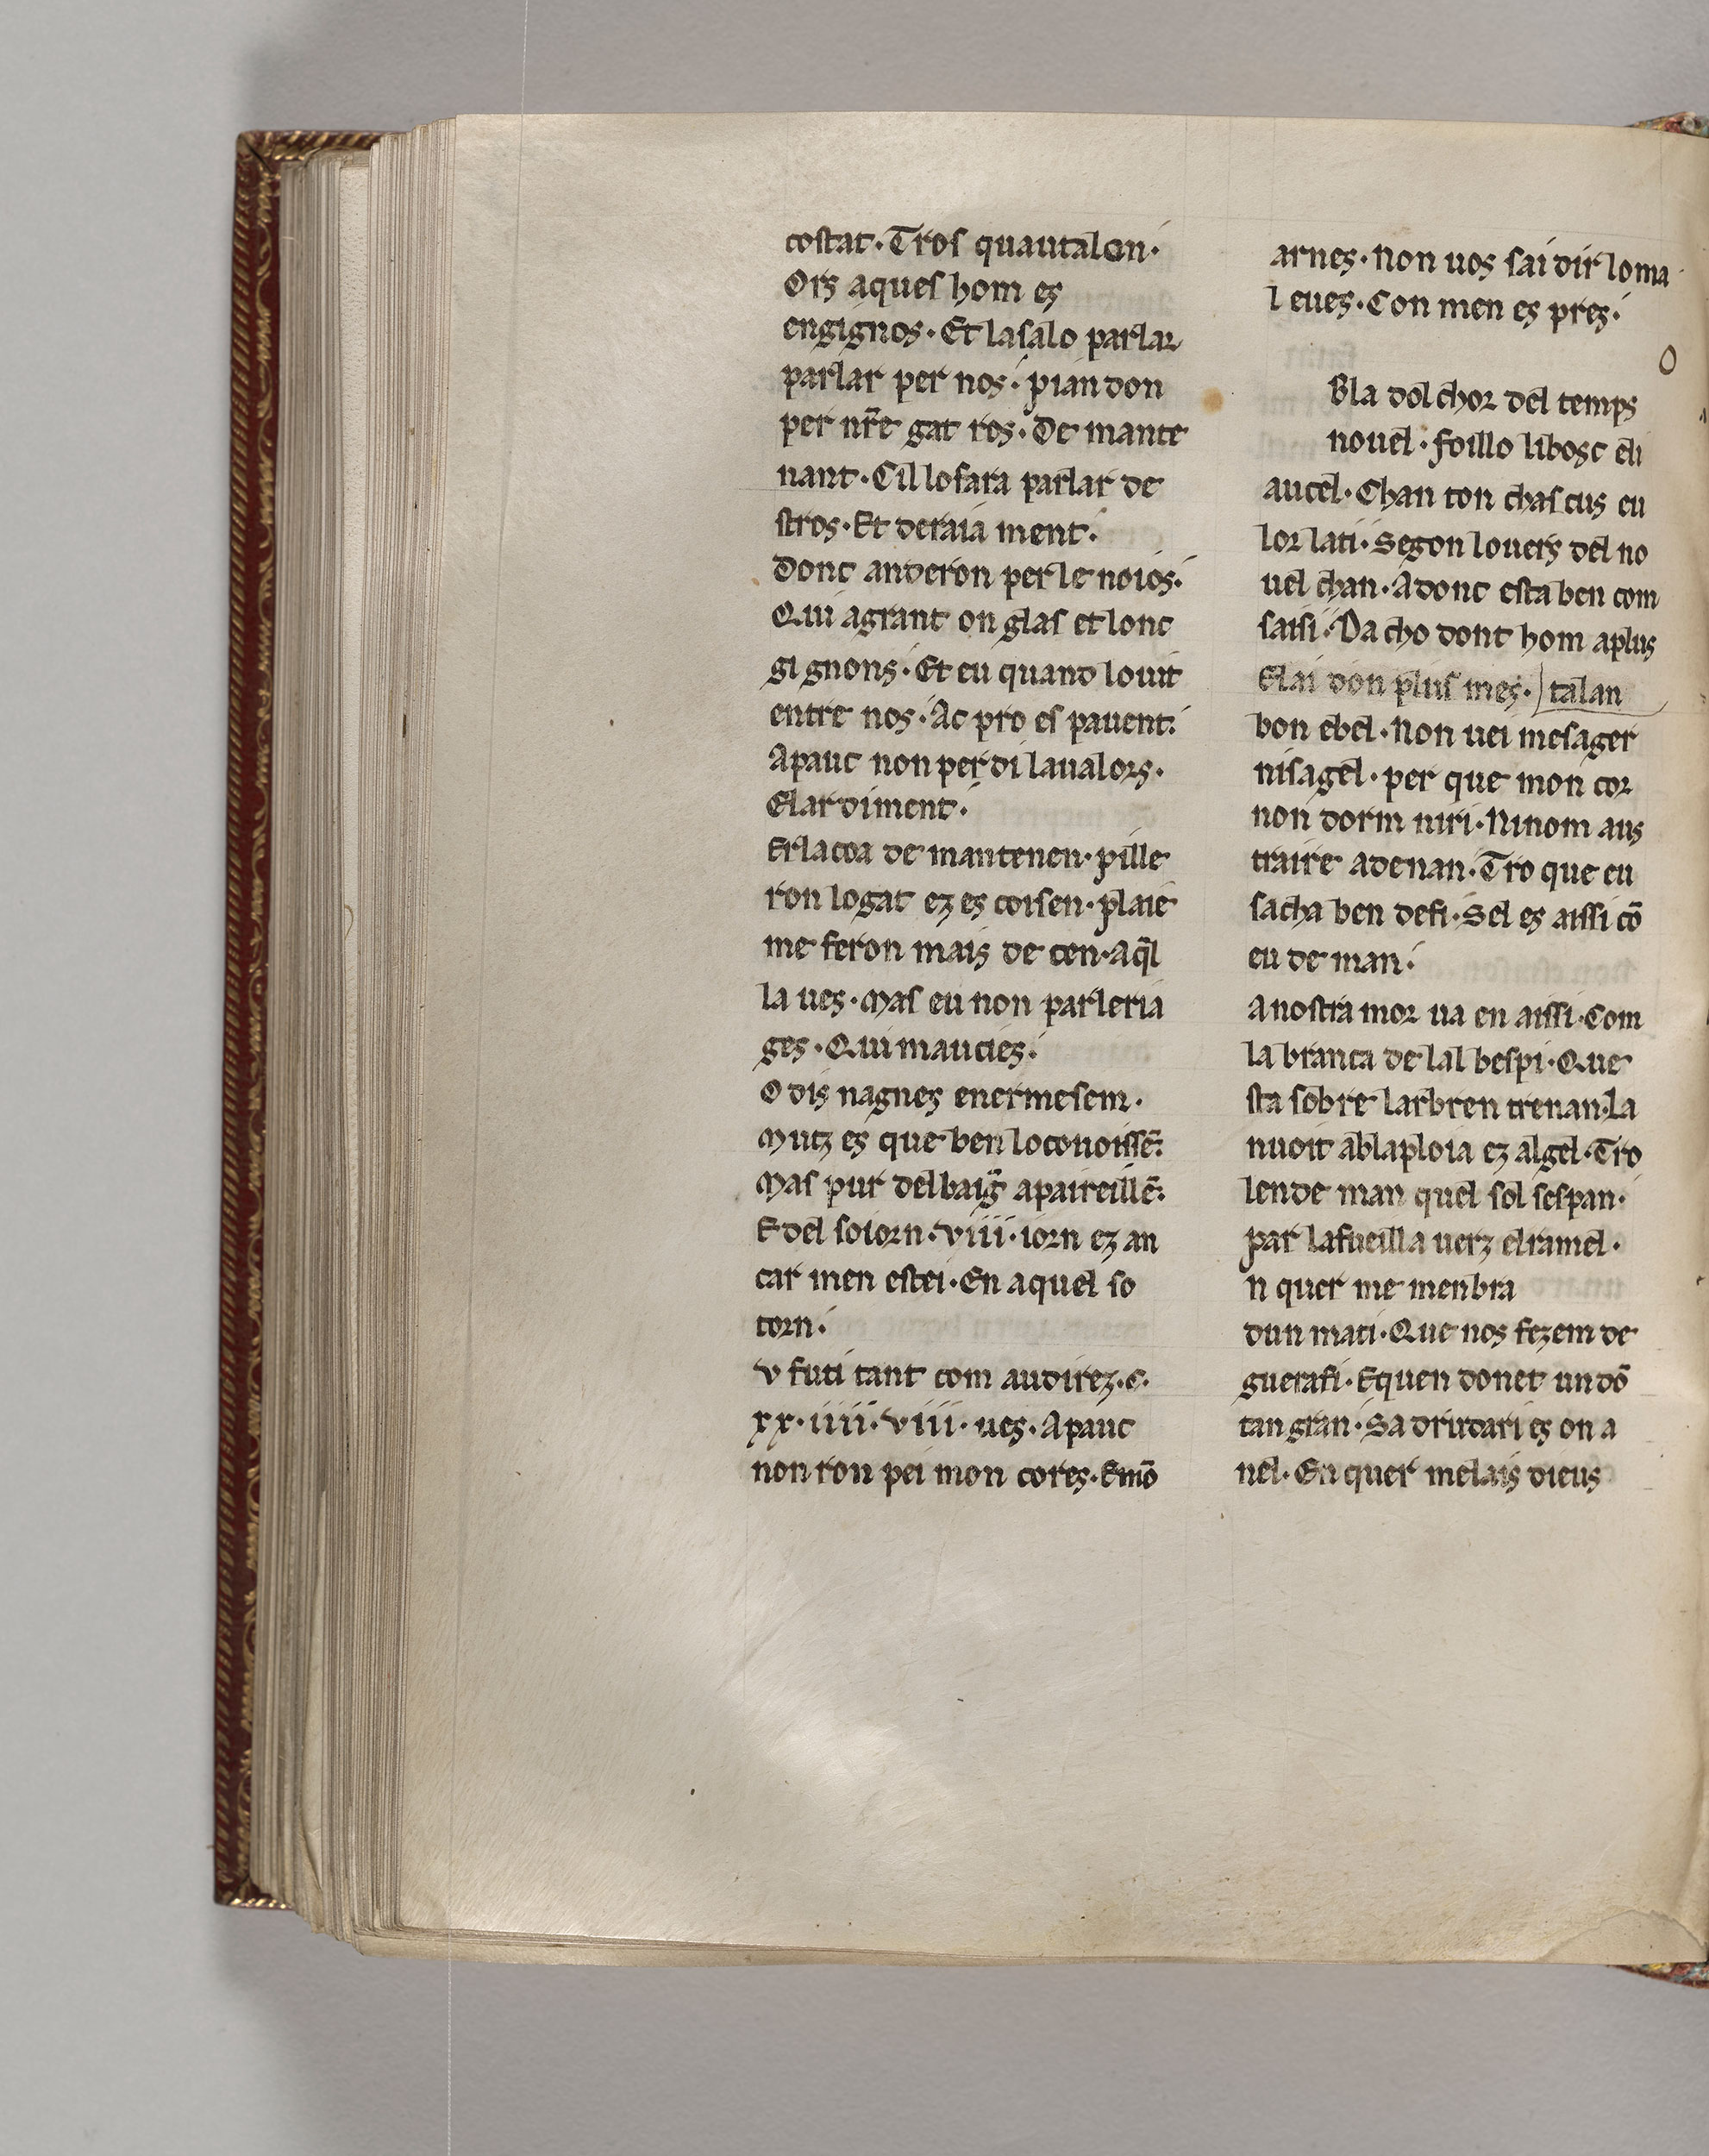 costat· Tros quautalon·
Ors aques hom es
engignos· Et lasalo parlar
parlar per nos· pian don
per nr̄e gat ros· De mante
nant· Cil lo fara parlar de
stros· Et deraia ment·
Donc anderon per le noios·
Qui agrant on glas et lonc
gi gnons· Et eu quand louit
entre nos· Ac pro es pauent·
Apauc non perdi laualors·
Elardiment·
Erla coa de mantenen· pille
ron logat ez es coisen· plaie
me feron mais de cen· aq̄l
la ues· Mas eu non parleria
ges· Qui maucies·
O dis nagnes enermesem·
Mutz es que ben loconoissē·
Mas pur del baig apaireillē·
E del soiorn· viii· iorn ez an
car men estei· En aquel so
torn·
v futi tant com audirez· c·
xx· iiii· viii· ues· Apauc
non ron pei mon cores· Emō
arnes· Non uos sai dir lo ma
l eues· Con men es pres·
o
Bla dolchor del temps
nouel· foillo li bosc eli
aucel· Chan ton chascus eu
lor lati· Segon louers del no
uel chan· Adonc esta ben com
saisi· Da cho dont hom aplus
Elai don plus mes· talan
bon ebel· Non uei mesager
nisagel· per que mon cor
non dorm niri· Ninom aus
traire adenan· Tro que eu
sacha ben defi· Sel es aissi cō
eu de man·
a nostra mor ua en aissi· Com
la branca de lal bespi· Que
sta sobre larbren trenan· La
nuoit ablaploia ez algel· Tro
lende man quel sol sespan·
par lafueilla uerz elramel·
n quer me menbra
dun mati· Que nos fezem de
guerafi· Equen donet un dō
tan gran· Sa drudari es on a
nel· En quer melais dieus